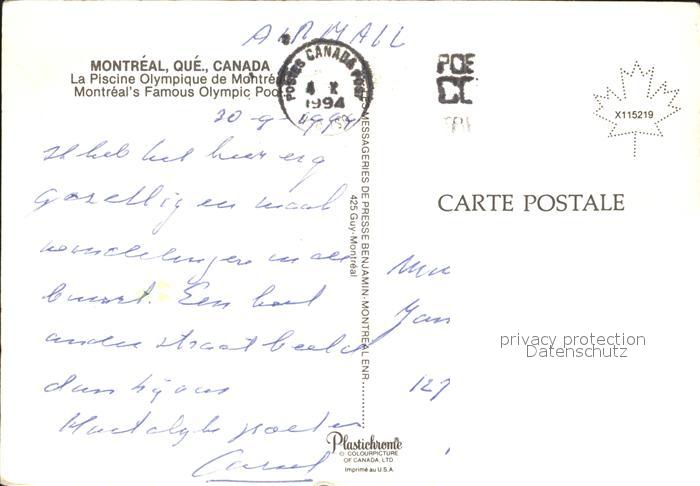 AIR MAIL
MONTRÉAL, QUÉ., CANADA
La Piscine Olympique de Montré
Montréal's Famous Olympic Poo
POSTES CANADA POST
1994
POS
X115219
30-9-1994
Ik heb het hier erg
gezellig en maak
wandelingen in de
buurt. Een heel
ander straatbeeld
dan bij ons
Hartelijke groeten
CARTE POSTALE
MESSAGERIES DE PRESSE BENJAMIN-MONTREAL ENR.
425 Guy-Montréal
Jan
127
privacy protection
Datenschutz
Plastichrome
© COLOURPICTURE
OF CANADA, LTD.
Imprimé au U.S.A.